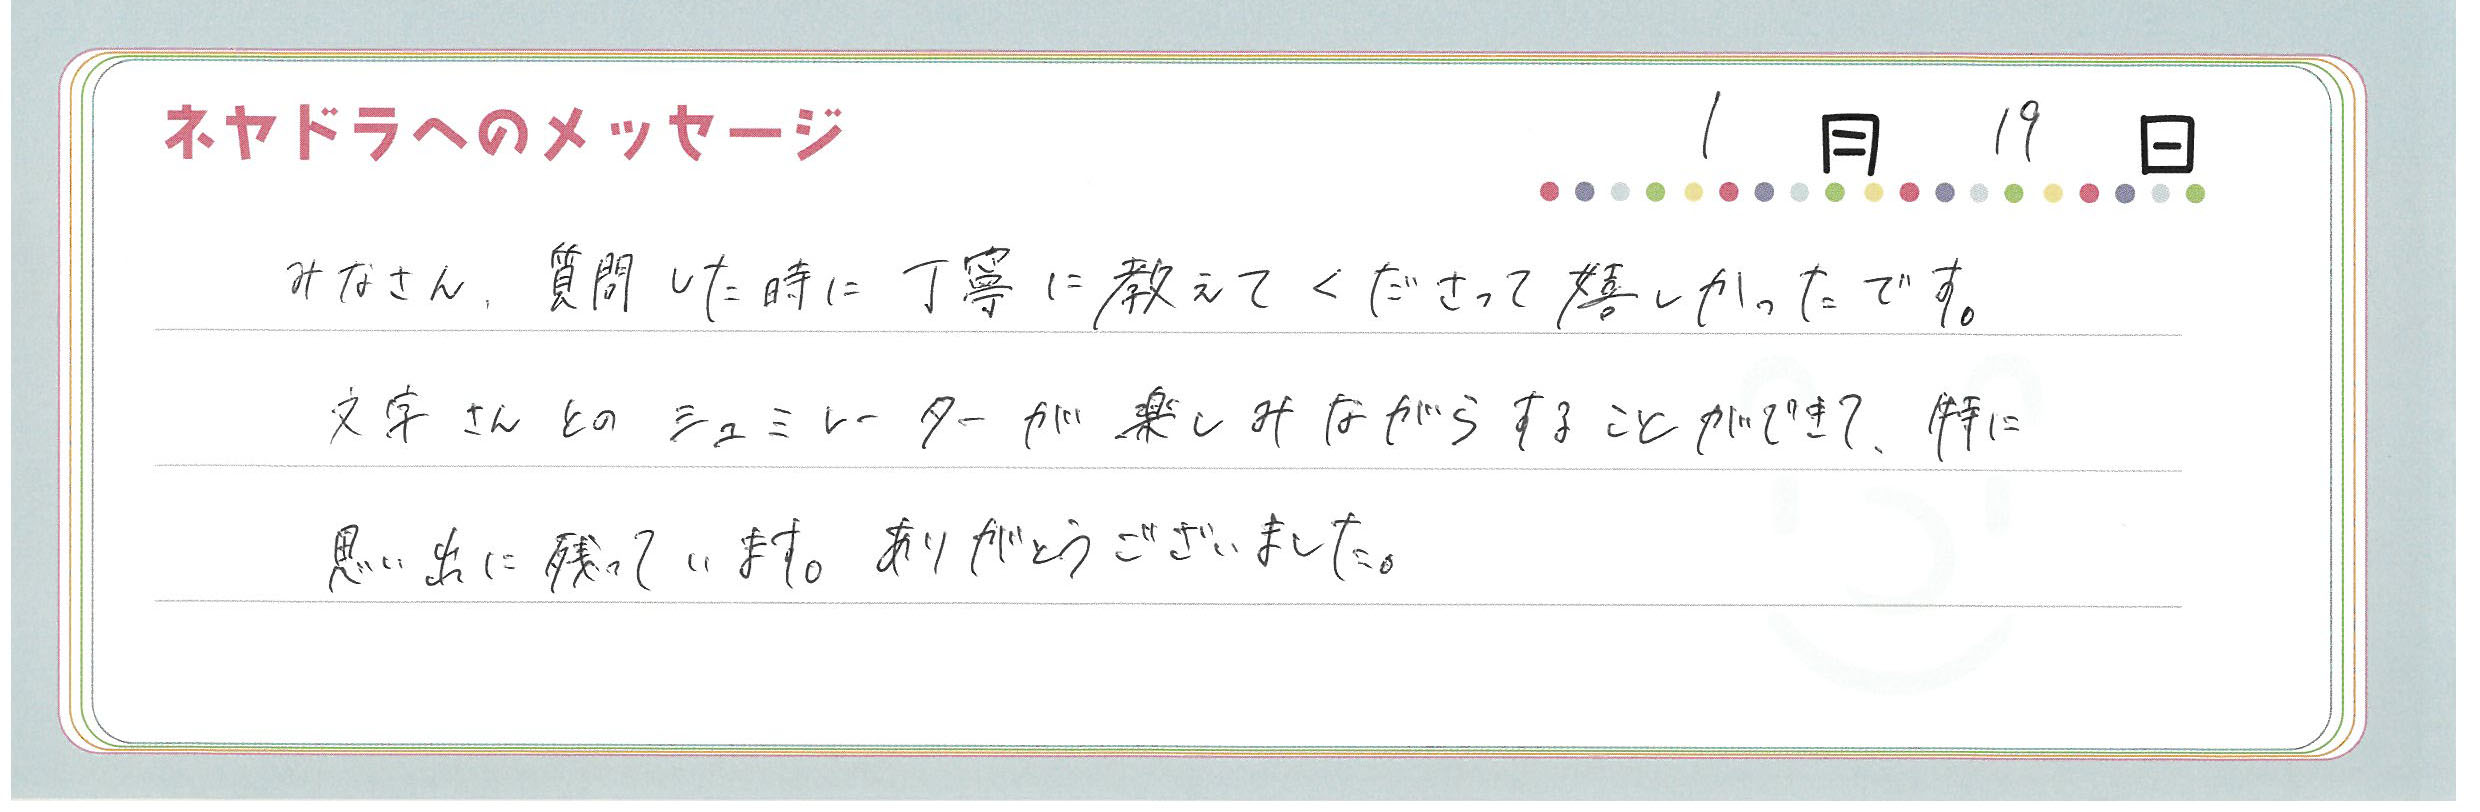 ネヤドラへのメッセージ
1月19日
みなさん、質問した時に丁寧に教えてくださって嬉しかったです。
文字さんとのシュミレーターが楽しみながらすることができて、特に
思い出に残っています。ありがとうございました。